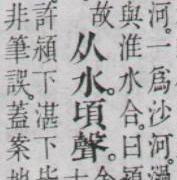 河。一爲沙河。
與淮水合。曰潁
故
从水。頃聲。
許潁下湛下皆
非筆誤。蓋案地